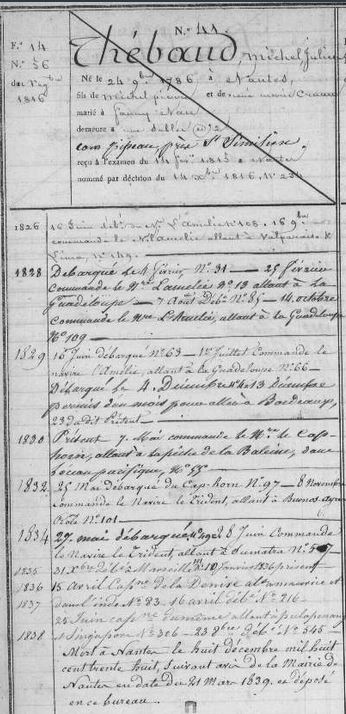 N.º 44.
Fº 14
Nº 56
du Reg.tre
1816
Thébaud, Michel Julien
Né le 24 9bre 1786 à Nantes,
fils de Michel Pierre et de
marié à Fanny
demeure à rue
près St Similien,
reçu à l'examen du 14 1815 à Nantes
nommé par décision du 14 Xbre 1816, Nº 234
1826 16 Juin déb. du Nre L'Amélie Nº 108. 16 9bre
commande le N. l'Amélie allant à Valparaiso &
Lima, Nº 149.
1828 Débarqué le 4 février, Nº 31 — 25 février
commande le Nre L'amélie Nº 13 allant à la
Guadeloupe — 7 Août Déb. Nº 85 — 14 octobre
commande le Nre L'Amélie, allant à la Guadeloupe
Nº 109
1829 16 Juin débarqué Nº 63 — 1er Juillet Commande le
navire l'Amélie, allant à la Guadeloupe Nº 66 —
Débarqué le 4 Décembre 13 Décembre
permis d'un mois pour aller à Bordeaux,
23 dudit Présent
1830 Présent 7 Mai commande le Nre le Cap-
horn, allant à la pêche de la Baleine, dans
l'océan pacifique, Nº 55
1832 25 Mai débarqué du Cap-horn Nº 97 — 8 Novembre
Commande le Navire le Trident, allant à Buenos-Ayres
Nº 101
1834 27 mai débarqué 28 Juin Commande
le Navire le Trident allant à Sumatra Nº
1835 31 Xbre déb. à Marseille 19 février 1836 présent
1836 15 avril Capne de la Denise al. Maurice et
1837 dans l'inde Nº 83. 16 avril déb. Nº 216.
25 Juin capne Eumène allant à
1838 Singapore Nº 306 — 23 8bre Déb. Nº 545 —
Mort à Nantes le huit décembre mil huit
cent trente huit, suivant avis de la Mairie de
Nantes en date du 21 Mars 1839, et déposé
en ce bureau.